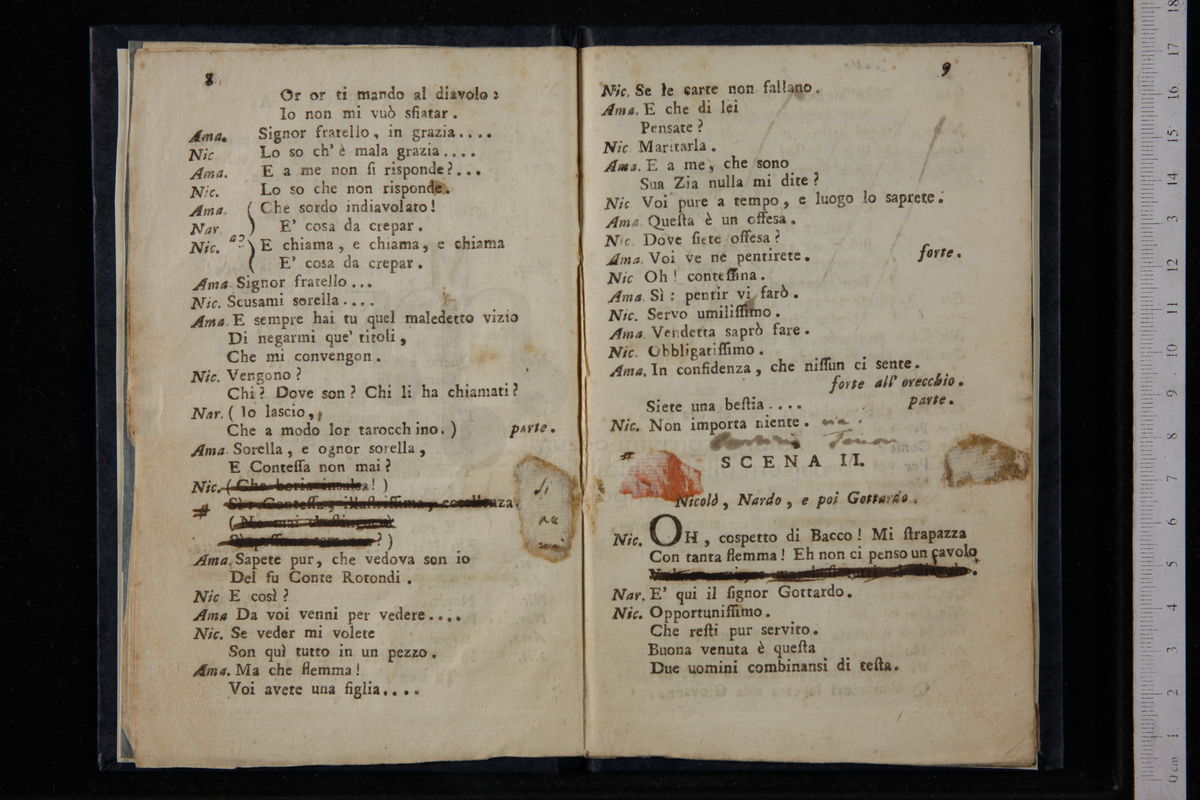 8
Or or ti mando al diavolo:
Io non mi vuò sfiatar.
Ama. Signor fratello, in grazia....
Nic Lo so ch' è mala grazia....
Ama. E a me non si risponde?...
Nic. Lo so che non risponde.
Ama. Che sordo indiavolato!
Nar. E' cosa da crepar.
Nic. a2 E chiama, e chiama, e chiama
E' cosa da crepar.
Ama. Signor fratello...
Nic. Scusami sorella....
Ama. E sempre hai tu quel maledetto vizio
Di negarmi que' titoli,
Che mi convengon.
Nic. Vengono?
Chi? Dove son? Chi li ha chiamati?
Nar. (Io lascio,
Che a modo lor tarocchino.) parte.
Ama. Sorella, e ognor sorella,
E Contessa non mai?
Nic. (Che boria insulsa!)
# Sì: Contessa, illustrissima, eccellenza
Si
?)
Ama. Sapete pur, che vedova son io
Del fu Conte Rotondi.
Nic E così?
Ama Da voi venni per vedere....
Nic. Se veder mi volete
Son quì tutto in un pezzo.
Ama. Ma che flemma!
Voi avete una figlia....
9
Nic. Se le carte non fallano.
Ama. E che di lei
Pensate?
Nic Maritarla.
Ama. E a me, che sono
Sua Zia nulla mi dite?
Nic Voi pure a tempo, e luogo lo saprete.
Ama Questa è un offesa.
Nic. Dove siete offesa?
Ama. Voi ve ne pentirete. forte.
Nic Oh! contessina.
Ama. Sì: pentir vi farò.
Nic. Servo umilissimo.
Ama. Vendetta saprò fare.
Nic. Obbligatissimo.
Ama. In confidenza, che nissun ci sente.
forte all' orecchio.
Siete una bestia.... parte.
Nic. Non importa niente. via.
# SCENA III.
Nicolò, Nardo, e poi Gottardo.
Nic. OH, cospetto di Bacco! Mi strapazza
Con tanta flemma! Eh non ci penso un cavolo
Nar. E' qui il signor Gottardo.
Nic. Opportunissimo.
Che resti pur servito.
Buona venuta è questa
Due uomini combinansi di testa.